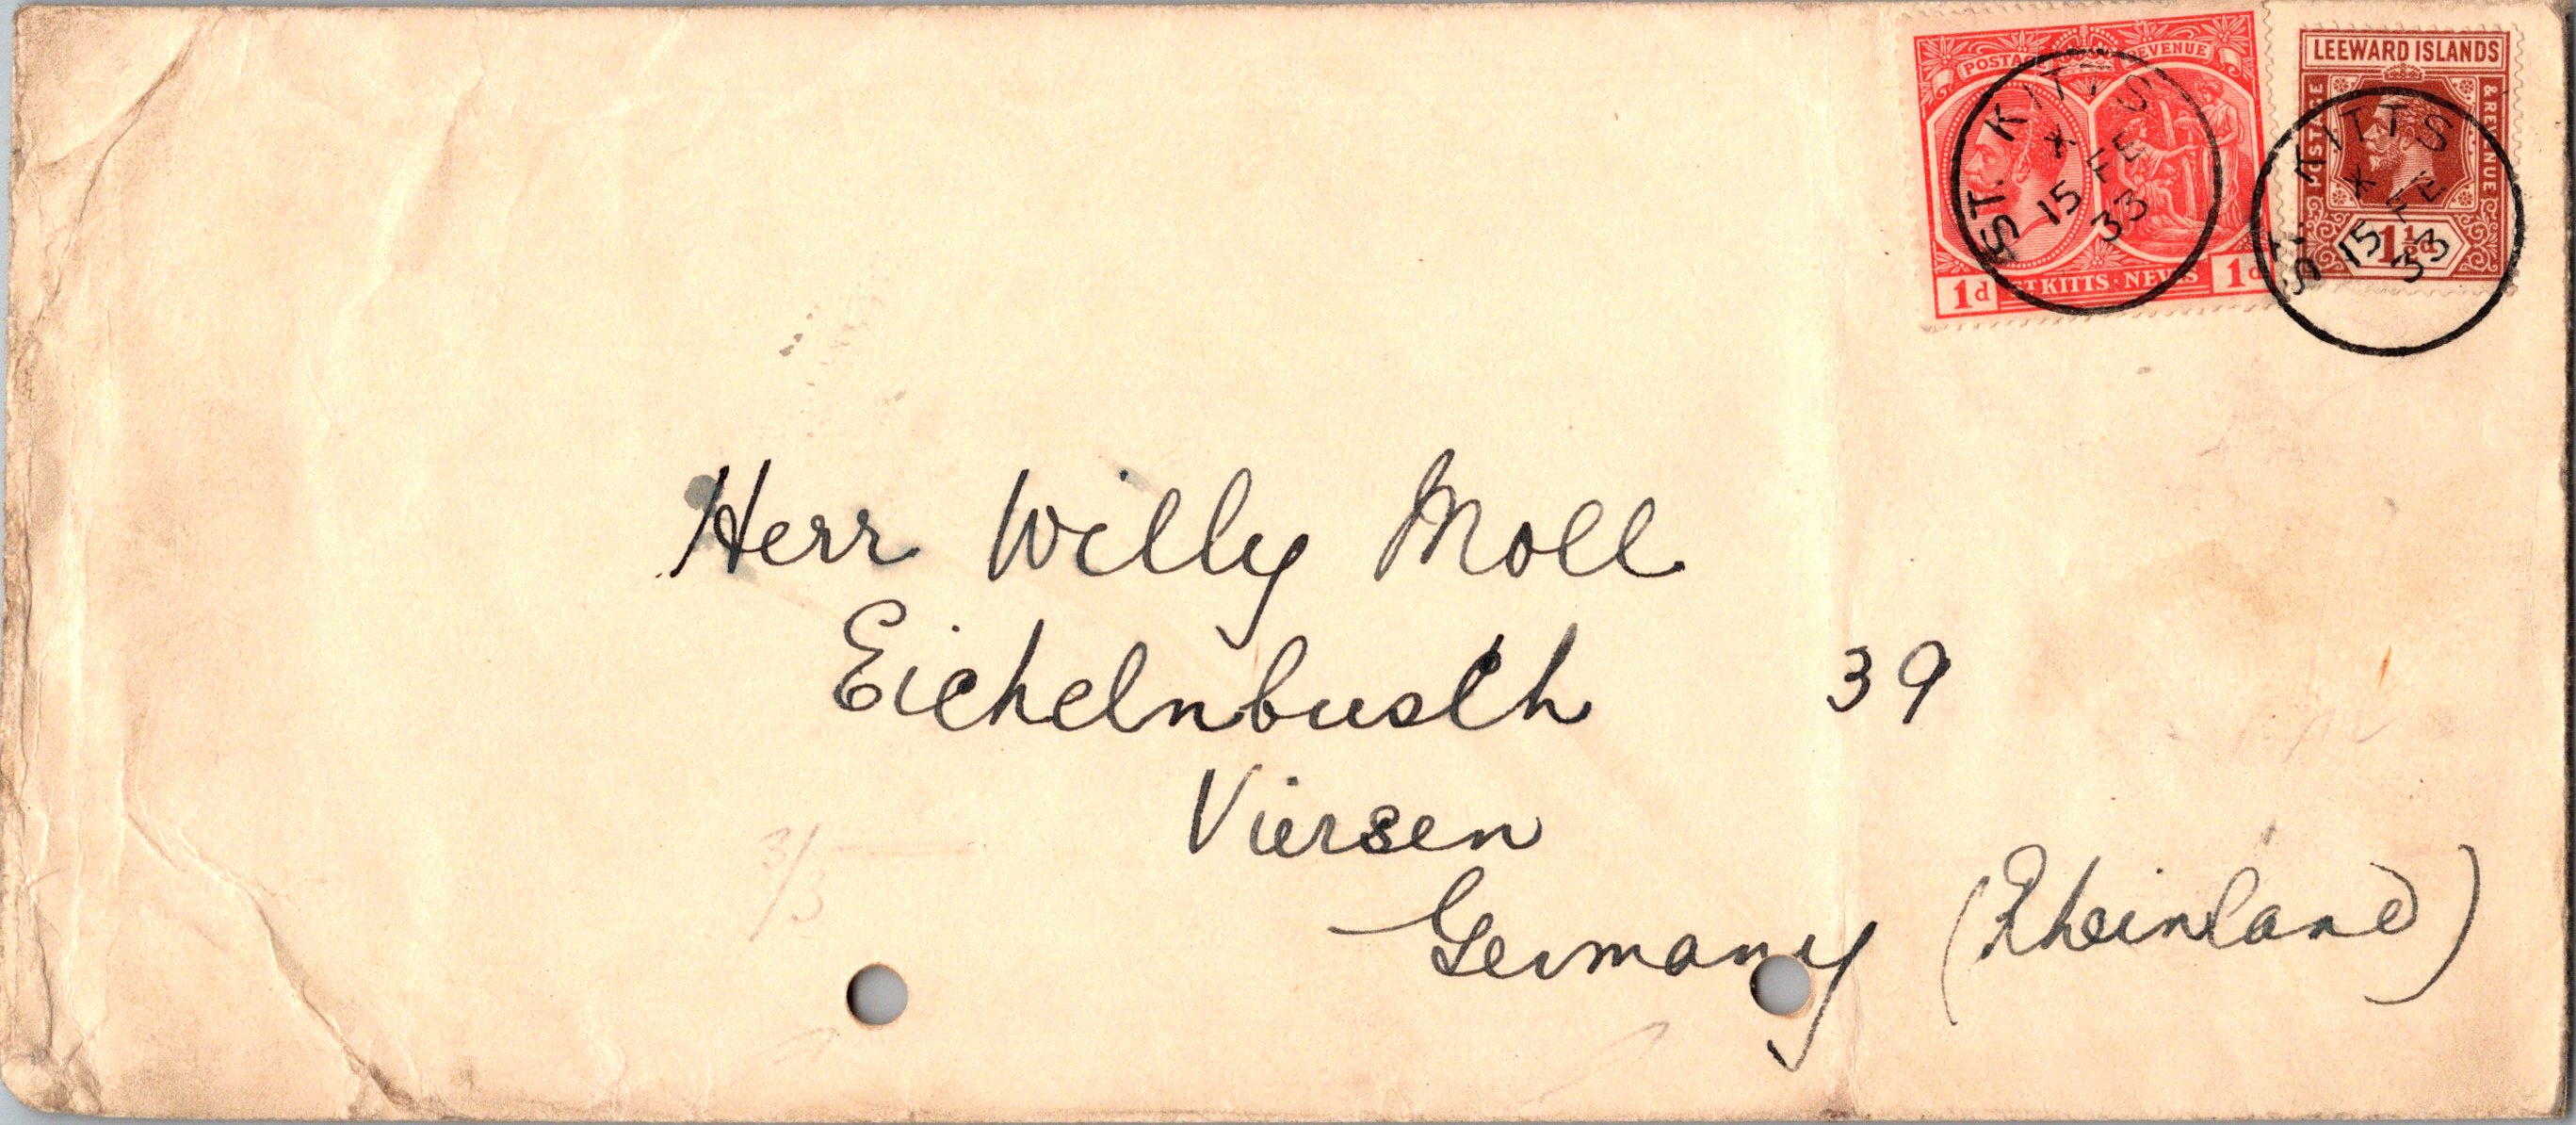 POSTAGE REVENUE
1d ST KITTS·NEVIS 1d
ST. KITTS
X
15 FE
33
LEEWARD ISLANDS
POSTAGE
& REVENUE
1½d
ST. KITTS
X
15 FE
33
Herr Willy Moll
Eichelnbusch 39
Viersen
Germany (Rheinland)
3/3